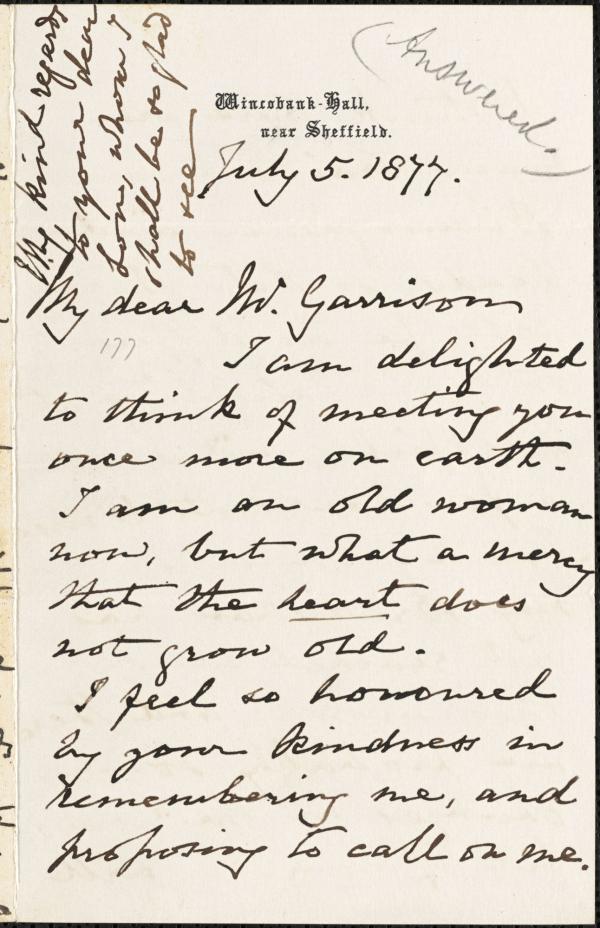 (Answered.)
Wincobank-Hall,
near Sheffield.
July 5. 1877.
My dear Mr. Garrison
I am delighted
to think of meeting you
once more on earth.
I am an old woman
now, but what a mercy
that the heart does
not grow old.
I feel so honoured
by your kindness in
remembering me, and
proposing to call on me.
My kind regards
to your dear
Son, whom I
shall be so glad
to see